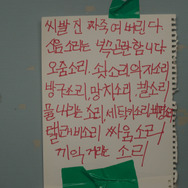 씨발 진짜 죽여 버린다.
소음 소리는 녹음관함니다
오줌소리. 쇳소리 의자소리
방구소리, 망치소리 발소리
물 나리는 소리 세탁기소리
텔레비소리 싸움 소리
끼익 거리는 소리